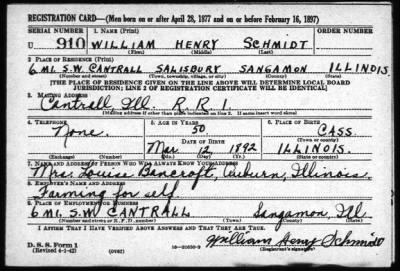 REGISTRATION CARD—(Men born on or after April 28, 1877 and on or before February 16, 1897)
SERIAL NUMBER 1. NAME (Print) ORDER NUMBER
U 910 WILLIAM HENRY SCHMIDT
(First) (Middle) (Last)
2. PLACE OF RESIDENCE (Print)
6 MI. S.W. CANTRALL SALISBURY SANGAMON ILLINOIS
(Number and street) (Town, township, village, or city) (County) (State)
[THE PLACE OF RESIDENCE GIVEN ON THE LINE ABOVE WILL DETERMINE LOCAL BOARD
JURISDICTION; LINE 2 OF REGISTRATION CERTIFICATE WILL BE IDENTICAL]
3. MAILING ADDRESS
Cantrall Ill. R. R. 1.
[Mailing address if other than place indicated on line 2. If same insert word same]
4. TELEPHONE 5. AGE IN YEARS 6. PLACE OF BIRTH
None. 50 CASS
DATE OF BIRTH (Town or county)
Mar. 12, 1892 ILLINOIS.
(Exchange) (Number) (Mo.) (Day) (Yr.) (State or country)
7. NAME AND ADDRESS OF PERSON WHO WILL ALWAYS KNOW YOUR ADDRESS
Mrs. Louise Bancroft, Auburn, Illinois.
8. EMPLOYER'S NAME AND ADDRESS
Farming for self.
9. PLACE OF EMPLOYMENT OR BUSINESS
6 MI. S.W. CANTRALL Sangamon, Ill
(Number and street or R. F. D. number) (Town) (County) (State)
I AFFIRM THAT I HAVE VERIFIED ABOVE ANSWERS AND THAT THEY ARE TRUE.
William Henry Schmidt
D. S. S. Form 1 (over) (Registrant's signature)
(Revised 4-1-42)